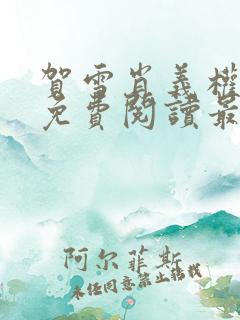 賀雪肖義權
免費閱讀最
阿尔菲斯
未经同意禁止转载